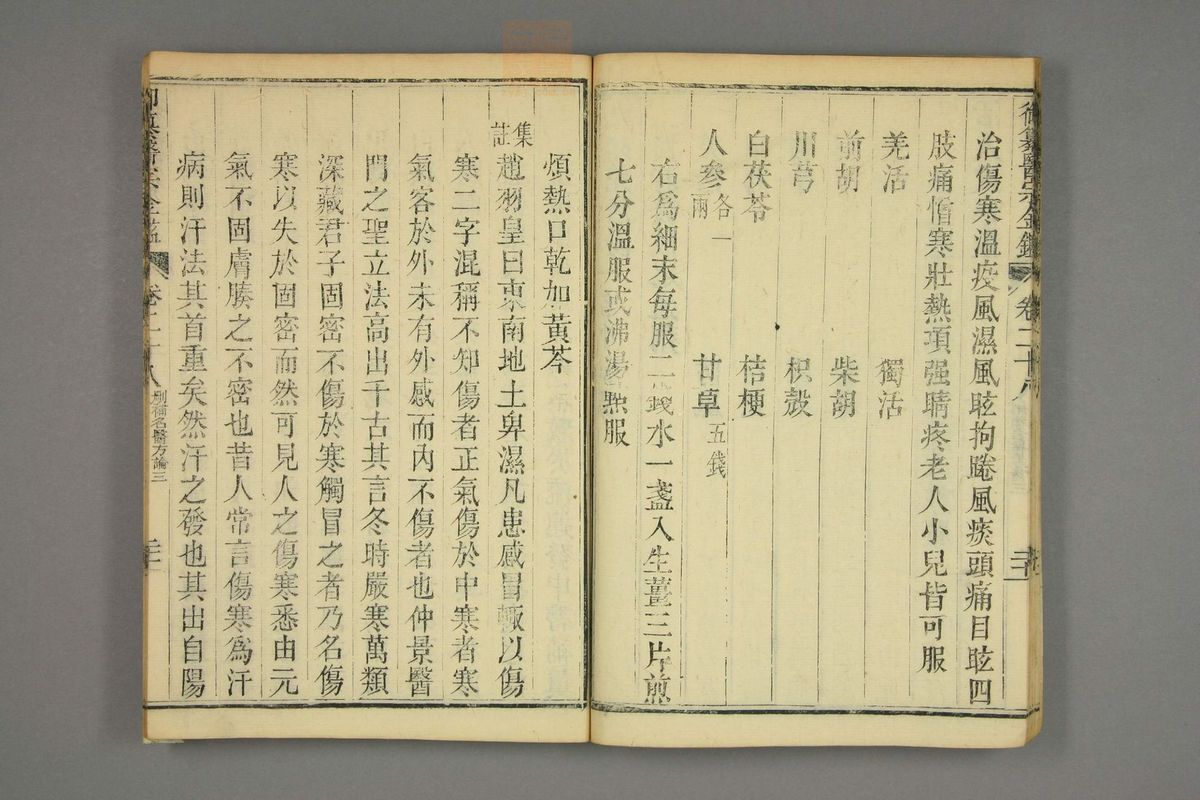 御纂醫宗金鑑 卷二十八
治傷寒溫疫風濕風眩拘踡風痰頭痛目眩四
肢痛憎寒壯熱項强睛疼老人小兒皆可服
羌活 獨活
前胡 柴胡
川芎 枳殼
白茯苓 桔梗
人參各一兩 甘草五錢
右為細末每服二錢水一盞入生薑三片煎
七分溫服或沸湯㸃服
煩熱口乾加黃芩
集註趙羽皇曰東南地土卑濕凡患感冒輒以傷
寒二字混稱不知傷者正氣傷於中寒者寒
氣客於外未有外感而內不傷者也仲景醫
門之聖立法高出千古其言冬時嚴寒萬類
深藏君子固密不傷於寒觸冒之者乃名傷
寒以失於固密而然可見人之傷寒悉由元
氣不固膚腠之不密也昔人常言傷寒為汗
病則汗法其首重矣然汗之發也其出自陽
御纂醫宗金鑑 卷二十八 刪補名醫方論三